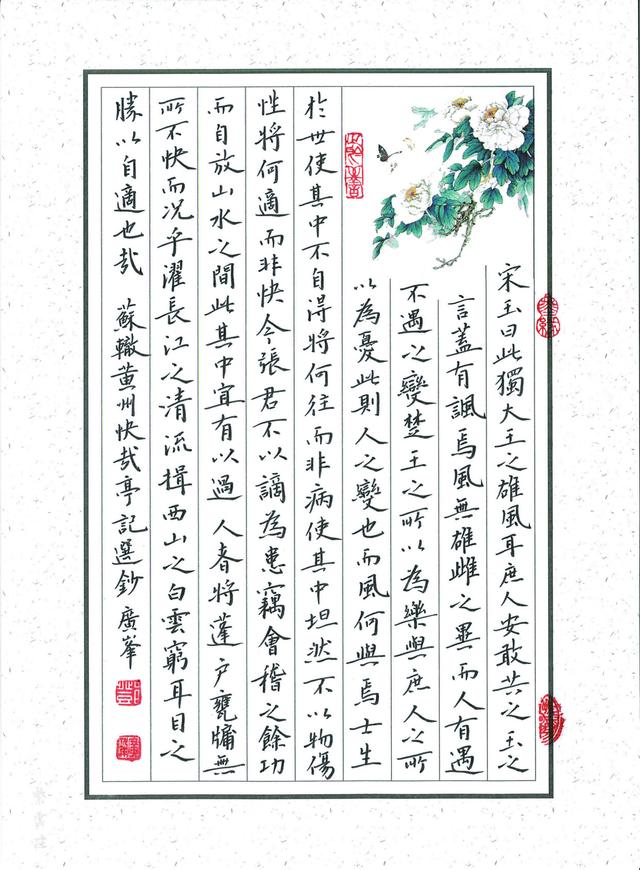 宋玉曰此獨大王之雄風耳庶人安敢共之玉之
言蓋有諷焉風無雄雌之異而人有遇
不遇之變楚王之所以為樂與庶人之所
以為憂此則人之變也而風何與焉士生
於世使其中不自得將何往而非病使其中坦然不以物傷
性將何適而非快今張君不以謫為患竊會稽之餘功
而自放山水之間此其中宜有以過人者將蓬戶甕牖無
所不快而況乎濯長江之清流揖西山之白雲窮耳目之
勝以自適也哉 蘇轍黃州快哉亭記選鈔 廣峯